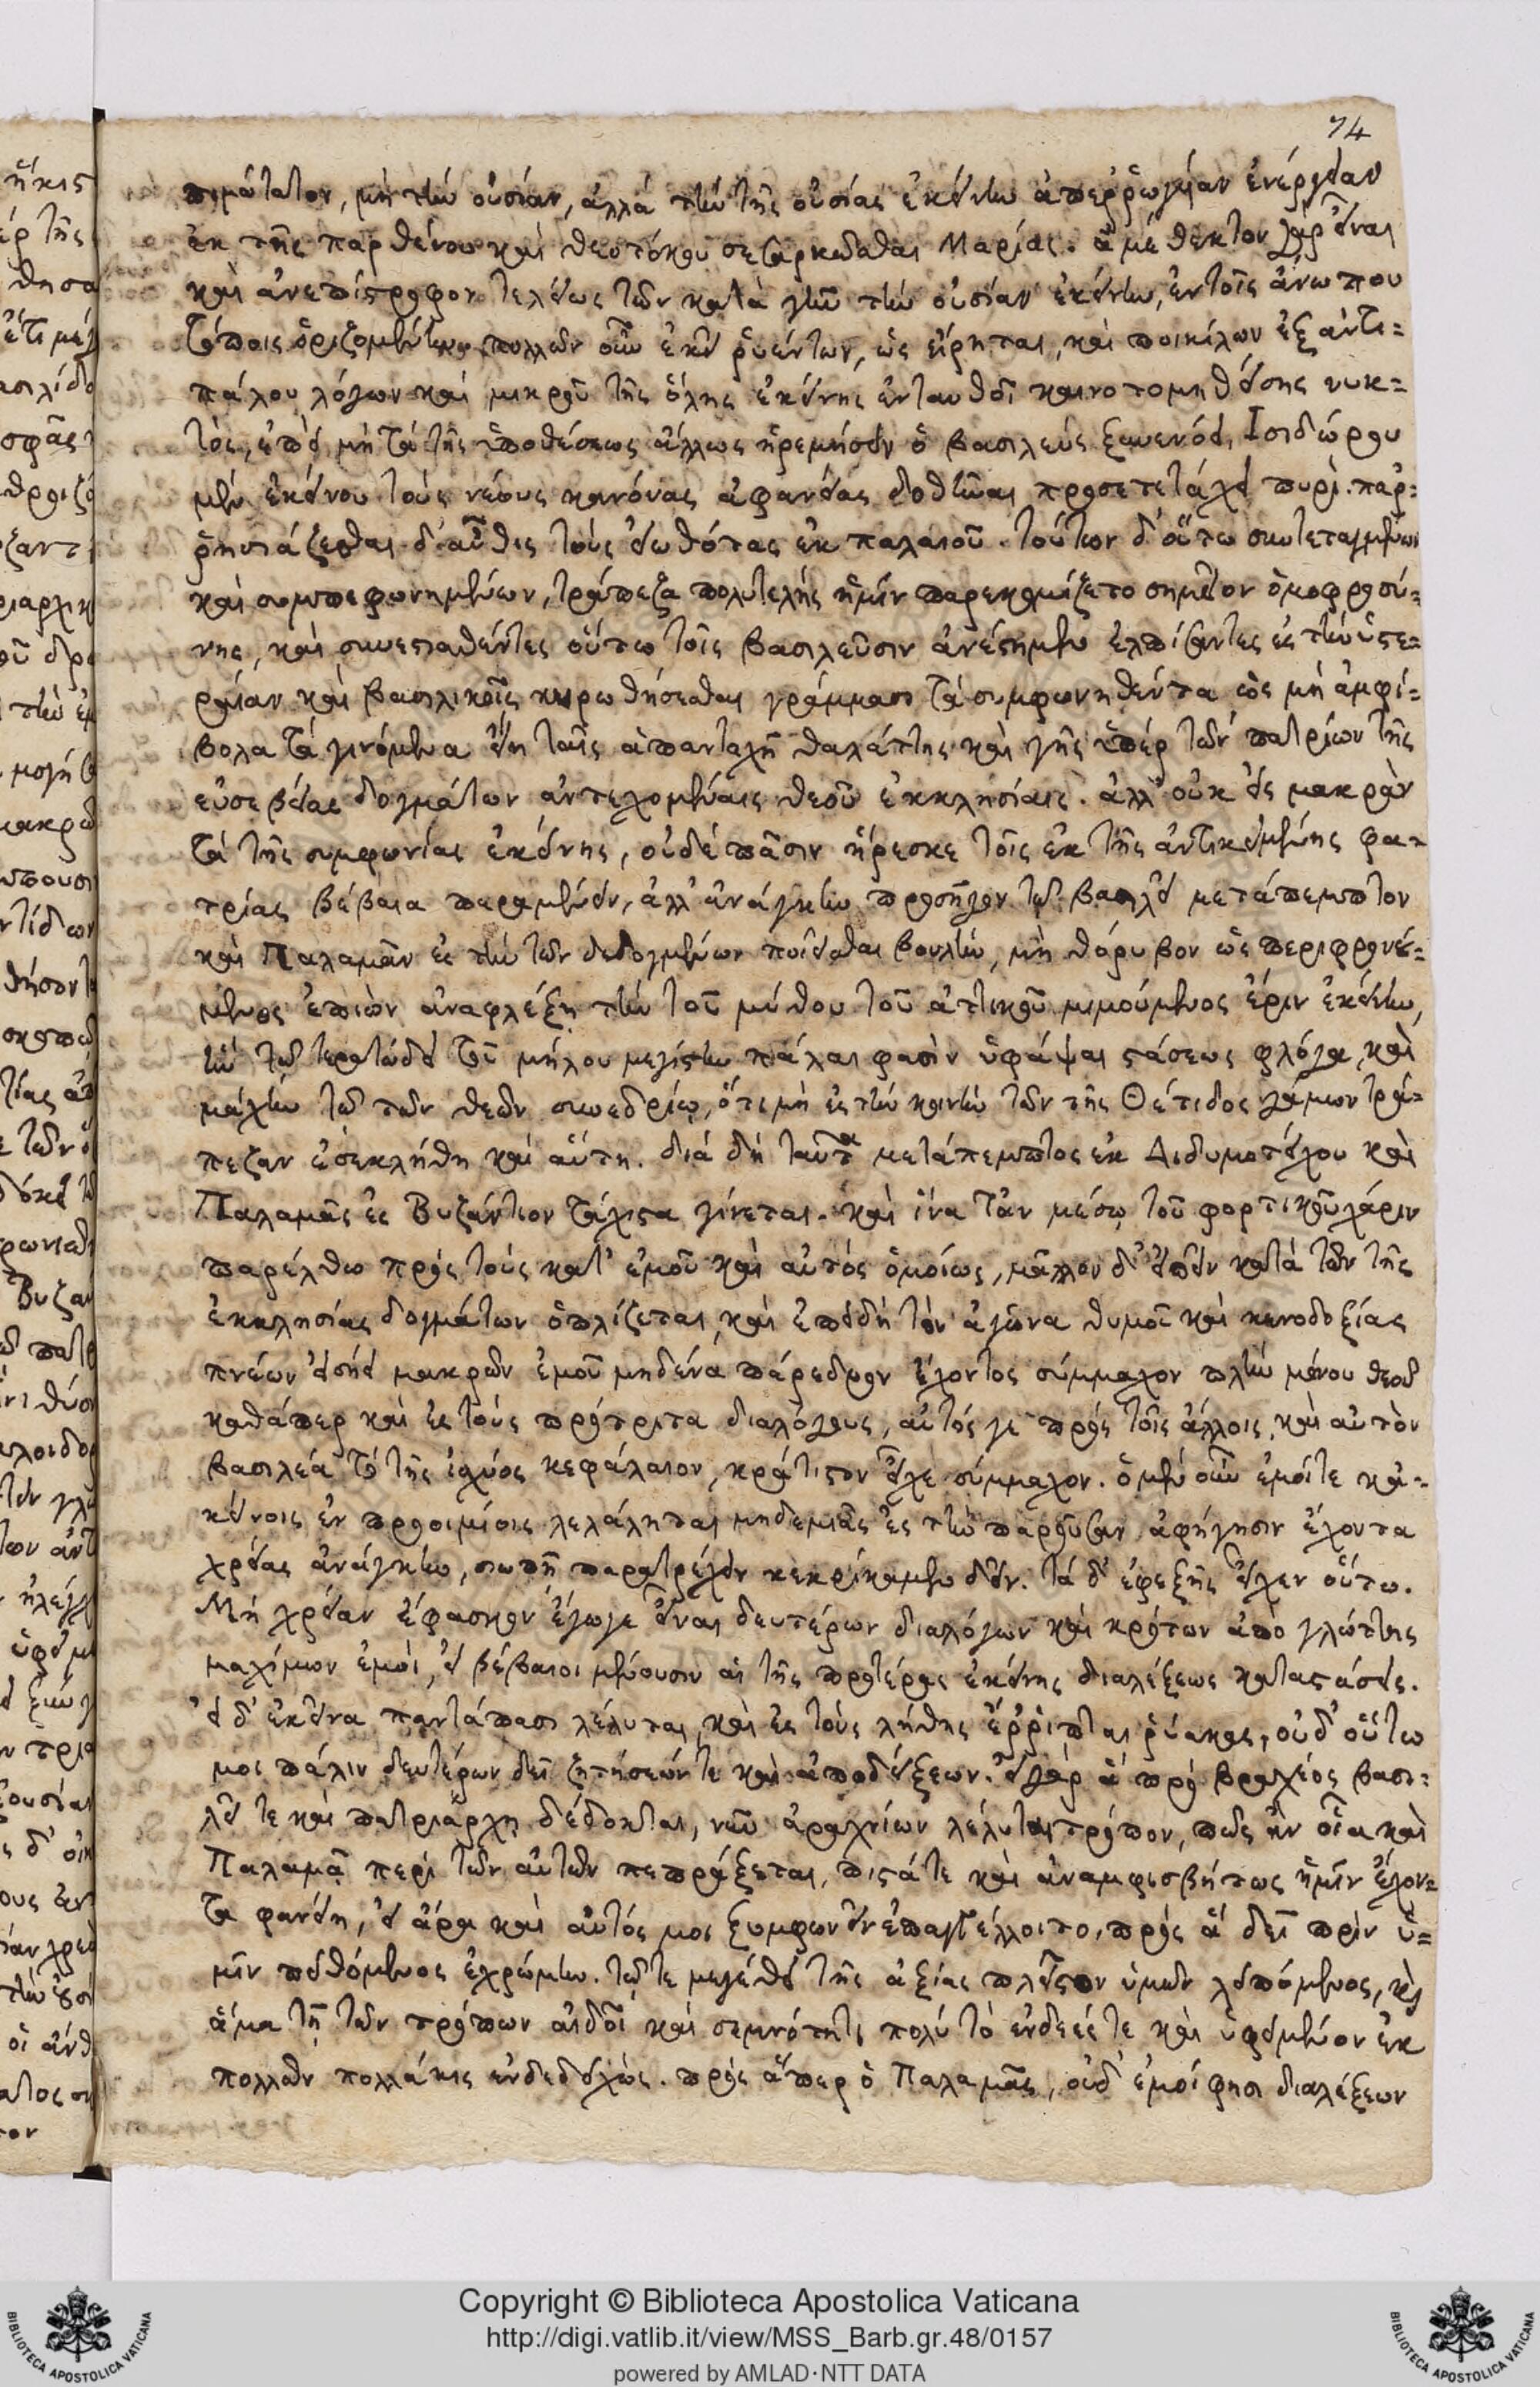 74
τιμώτατον, μὴ τὴν οὐσίαν, ἀλλὰ τὴν τῆς οὐσίας ἐκείνην ἀπερρωγυῖαν ἐνέργειαν
ἐκ τῆς παρθένου καὶ θεοτόκου σεσαρκῶσθαι Μαρίας. ἀμέθεκτον γὰρ εἶναι
καὶ ἀνεπίστροφον τελέως τῶν κατὰ γῆν τὴν οὐσίαν ἐκείνην, ἐν τοῖς ἄνω που
τόποις ὁριζομένην. πολλῶν οὖν ἐκεῖ ῥυέντων, ὡς εἴρηται, καὶ ποικίλων ἐξ ἀντι=
πάλου λόγων καὶ μικροῦ τῆς ὅλης ἐκείνης ἐνταυθοῖ καινοτομηθείσης νυκ=
τὸς, ἐπεὶ μὴ τὰ τῆς ὑποθέσεως ἄλλως ἠρεμήσειν ὁ βασιλεὺς ξυνενόει, Ἰσιδώρου
μὲν ἐκείνου τοὺς νέους κανόνας ἀφανείας δοθῆναι προσετετάχει πυρί. παρ=
ρησιάζεσθαι δ' αὖθις τοὺς εἰωθότας ἐκ παλαιοῦ. τούτων δ' οὕτω συντεταγμένων
καὶ συμπεφωνημένων, τράπεζα πολυτελὴς ἡμῖν παρεκομίζετο σημεῖον ὁμοφροσύ=
νης, καὶ συνεστιαθέντες οὕτω τοῖς βασιλεῦσιν ἀνέστημεν ἐλπίσαντες ἐς τὴν ὑστε=
ραίαν καὶ βασιλικοῖς κυρωθήσεσθαι γράμμασι τὰ συμφωνηθέντα ὡς μὴ ἀμφί=
βολα τὰ γινόμενα εἴη ταῖς ἁπανταχῆ θαλάττης καὶ γῆς ὑπὲρ τῶν πατρίων τῆς
εὐσεβείας δογμάτων ἀντεχομέναις θεοῦ ἐκκλησίαις. ἀλλ' οὐκ εἰς μακρὰν
τὰ τῆς συμφωνίας ἐκείνης, οὐδὲ πᾶσιν ἤρεσκε τοῖς ἐκ τῆς ἀντικειμένης φα=
τρίας βέβαια παραμένειν, ἀλλ' ἀνάγκην προσῆγον τῷ βασιλεῖ μετάπεμπτον
καὶ Παλαμᾶν ἐς τὴν τῶν δεδογμένων ποιεῖσθαι βουλὴν, μὴ θόρυβον ὡς περιφρονού=
μενος ἐπιὼν ἀναφλέξῃ τὴν τοῦ μύθου τοῦ ἀττικοῦ μιμούμενος ἔριν ἐκείνην,
ἣν τῷ τερατώδει τοῦ μήλου μεγίστην πάλαι φασὶν ὑφάψαι στάσεως φλόγα, καὶ
μάχην τῷ τῶν θεῶν συνεδρίῳ, ὅτι μὴ ἐς τὴν κοινὴν τῶν τῆς Θέτιδος γάμων τρά=
πεζαν εἰσεκλήθη καὶ αὕτη. διὰ δὴ ταῦτα μετάπεμπτος ἐκ Διδυμοτείχου καὶ
Παλαμᾶς ἐς Βυζάντιον τάχιστα γίνεται. καὶ ἵνα τἂν μέσῳ τοῦ φορτικοῦ χάριν
παρέλθω πρὸς τοὺς κατ' ἐμοῦ καὶ αὐτὸς ὁμοίως, μᾶλλον δ' εἰπεῖν κατὰ τῶν τῆς
ἐκκλησίας δογμάτων ὁπλίζεται, καὶ ἐπειδὴ τὸν ἀγῶνα θυμοῦ καὶ κενοδοξίας
πνέων εἰσῄει μακρῶν ἐμοῦ μηδένα πάρεδρον ἔχοντος σύμμαχον πλὴν μόνου θεοῦ
καθάπερ καὶ ἐς τοὺς πρότριτα διαλόγους, αὐτός γε πρὸς τοῖς ἄλλοις, καὶ αὐτὸν
βασιλέα τὸ τῆς ἰσχύος κεφάλαιον, κράτιστον εἶχε σύμμαχον. ἃ μὲν οὖν ἐμοί τε κἀ=
κείνοις ἐν προοιμίοις λελάληται μηδεμιᾶς ἐς τὴν παροῦσαν ἀφήγησιν ἔχοντα
χρείας ἀνάγκην, σιωπῇ παρατρέχειν κεκρίκαμεν δεῖν. τὰ δ' ἐφεξῆς εἶχεν οὕτω.
Μὴ χρείαν ἔφασκον ἔγωγε εἶναι δευτέρων διαλόγων καὶ κρότων ἀπὸ γλώττης
μαχίμων ἐμοὶ, εἰ βέβαιοι μένουσιν αἱ τῆς προτέρας ἐκείνης διαλέξεως καταστάσεις.
εἰ δ' ἐκεῖνα παντάπασι λέλυται, καὶ ἐς τοὺς λήθης ἔρριπται ῥύακας, οὐδ' οὕτω
μοι πάλιν δευτέρων δεῖ ζητήσεών τε καὶ ἀποδείξεων. εἰ γὰρ ἃ πρὸ βραχέος βασι=
λεῖ τε καὶ πατριάρχῃ δέδοκται, νῦν ἀραχνίων λέλυται τρόπον, πῶς ἂν οἷα καὶ
Παλαμᾷ περὶ τῶν αὐτῶν πεπράξεται, πιστά τε καὶ ἀναμφισβήτως ἡμῖν ἔχον=
τα φανείη, εἰ ἄρα καὶ αὐτός μοι ξυμφωνεῖν ἐπαγγέλλοιτο, πρὸς ἃ δεῖ πρὶν ὑ=
μῖν πειθόμενος ἐχρώμην. τῷ τε μεγέθει τῆς ἀξίας πλεῖστον ὑμῶν λειπόμενος, καὶ
ἅμα τῇ τῶν τρόπων αἰδοῖ καὶ σεμνότητι πολὺ τὸ ἐνδεές τε καὶ ὑφειμένον ἐκ
πολλῶν πολλάκις ἐνδεδειχώς. πρὸς ἅπερ ὁ Παλαμᾶς, οὐδ' ἐμοί φησι διαλέξεων
Copyright © Biblioteca Apostolica Vaticana
http://digi.vatlib.it/view/MSS_Barb.gr.48/0157
powered by AMLAD·NTT DATA
BIBLIOTECA APOSTOLICA VATICANA
BIBLIOTECA APOSTOLICA VATICANA